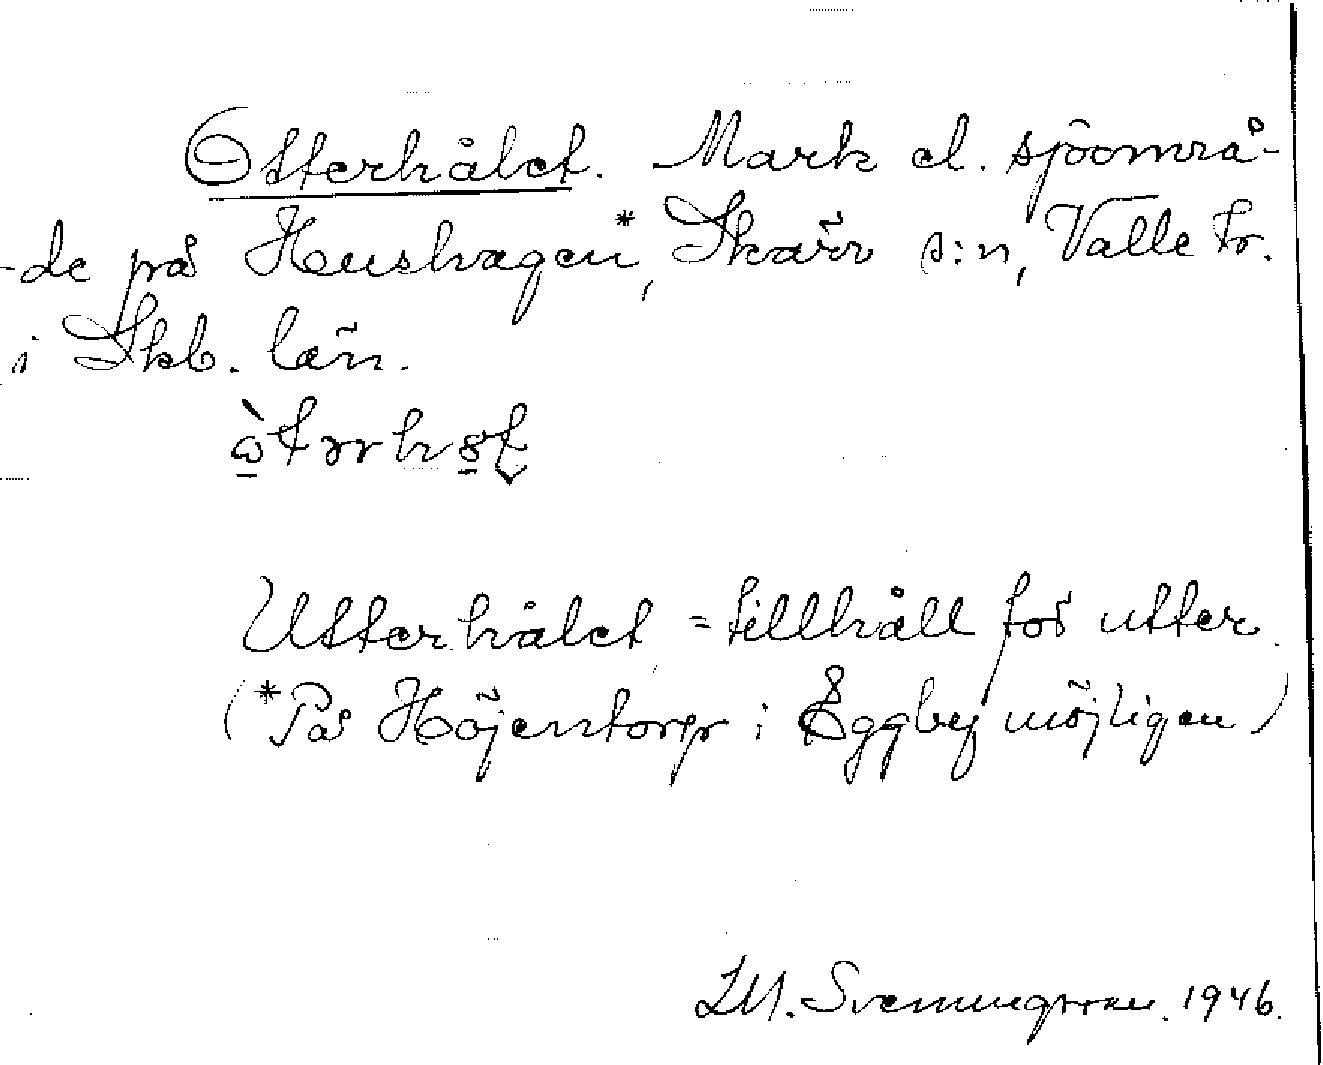 Otterhålet. Mark el. sjöområ-
-de på Hushagen*, Skärv s:n, Valle hr.
i Skb. län.
Utterhålet = tillhåll för utter.
(*På Höjentorp i Eggby möjligen)
Svenungsson. 1946.